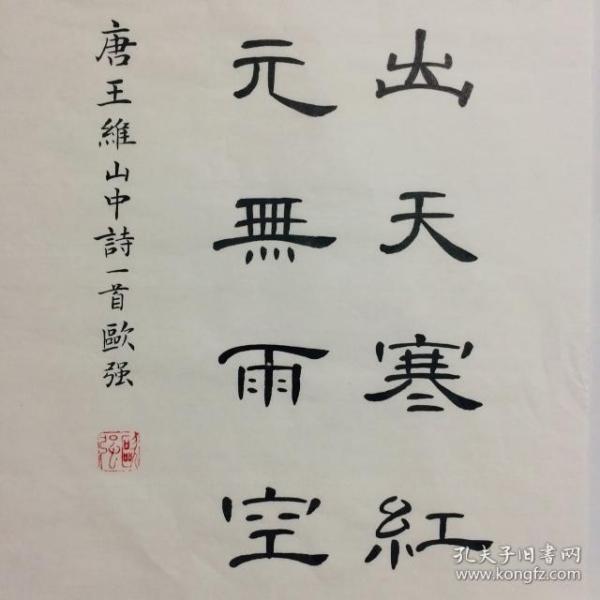 出天寒紅
元無雨空
唐王維山中詩一首歐强
歐强
孔夫子旧书网
www.kongfz.com